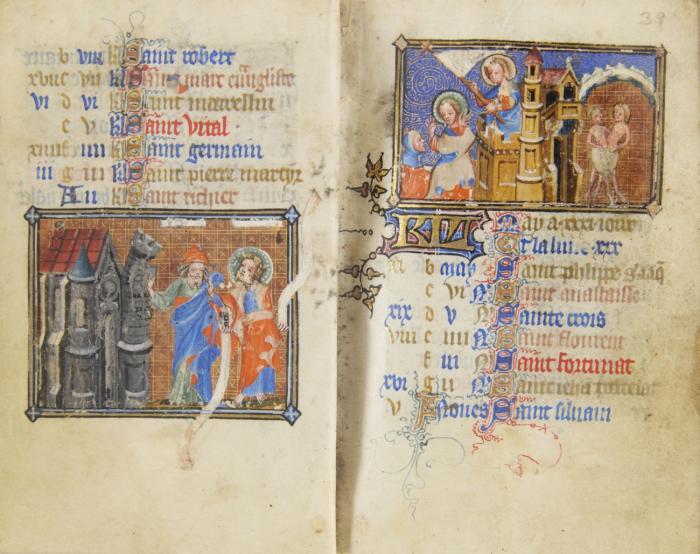 b viii kl Saint robert
xviie vii kl Saint marc euangliste
vi d vi kl Saint marcellin
e v kl Saint vital
xiiii f iiii kl Saint germain
iii g iii kl Saint pierre martyr
A ii kl Saint richier
39
KL May a xxxi iour
Et la lune xxx
b may Saint phlippe
c vi N Saint anastaise
xix d v N Sainte crois
viii e iiii N Saint flourent
f iii N Saint fortunat
xvi g ii N Saint
v A Nones Saint siluain